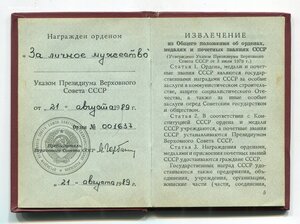 Награжден орденом
„За личное мужество"
Указом Президиума Верховного
Совета СССР
от „21" августа 1989 г.
Орден № 001637
Президиума
Верховного Совета СССР
„21" августа 1989 г.
ИЗВЛЕЧЕНИЕ
из Общего положения об орденах,
медалях и почетных званиях СССР
(Утверждено Указом Президиума Верховного
Совета СССР от 3 июля 1979 г.)
Статья 1. Ордена, медали и
почетные звания СССР являются
государственными наградами СССР за
заслуги в коммунистическом строительстве,
защите социалистического Отечества,
а также за иные особые
заслуги перед Советским государством
и обществом.
Статья 2. В соответствии с
Конституцией СССР ордена и медали
СССР учреждаются, а почетные звания
СССР устанавливаются
Президиумом Верховного Совета СССР.
Статья 3. Награждение орденами,
медалями и присвоение почетных званий
СССР
Государственных наград СССР
удостаиваются также объединения,
предприятия, учреждения, организации,
воинские части (части, соединения,
5